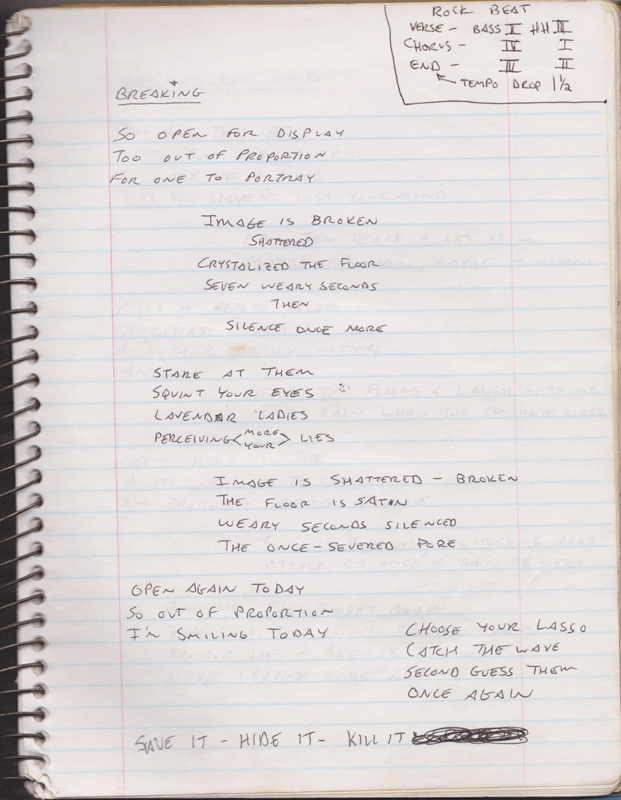 ROCK BEAT
VERSE - BASS II HH III
CHORUS - IV I
END - III II
TEMPO DROP 1½
BREAKING
SO OPEN FOR DISPLAY
TOO OUT OF PROPORTION
FOR ONE TO PORTRAY
IMAGE IS BROKEN
SHATTERED
CRYSTALIZED THE FLOOR
SEVEN WEARY SECONDS
THEN
SILENCE ONCE MORE
STARE AT THEM
SQUINT YOUR EYES
LAVENDER LADIES
PERCEIVING < MORE YOUR > LIES
IMAGE IS SHATTERED - BROKEN
THE FLOOR IS SATIN
WEARY SECONDS SILENCED
THE ONCE-SEVERED PORE
OPEN AGAIN TODAY
SO OUT OF PROPORTION
I'M SMILING TODAY
CHOOSE YOUR LASSO
CATCH THE WAVE
SECOND GUESS THEM
ONCE AGAIN
SAVE IT - HIDE IT - KILL IT